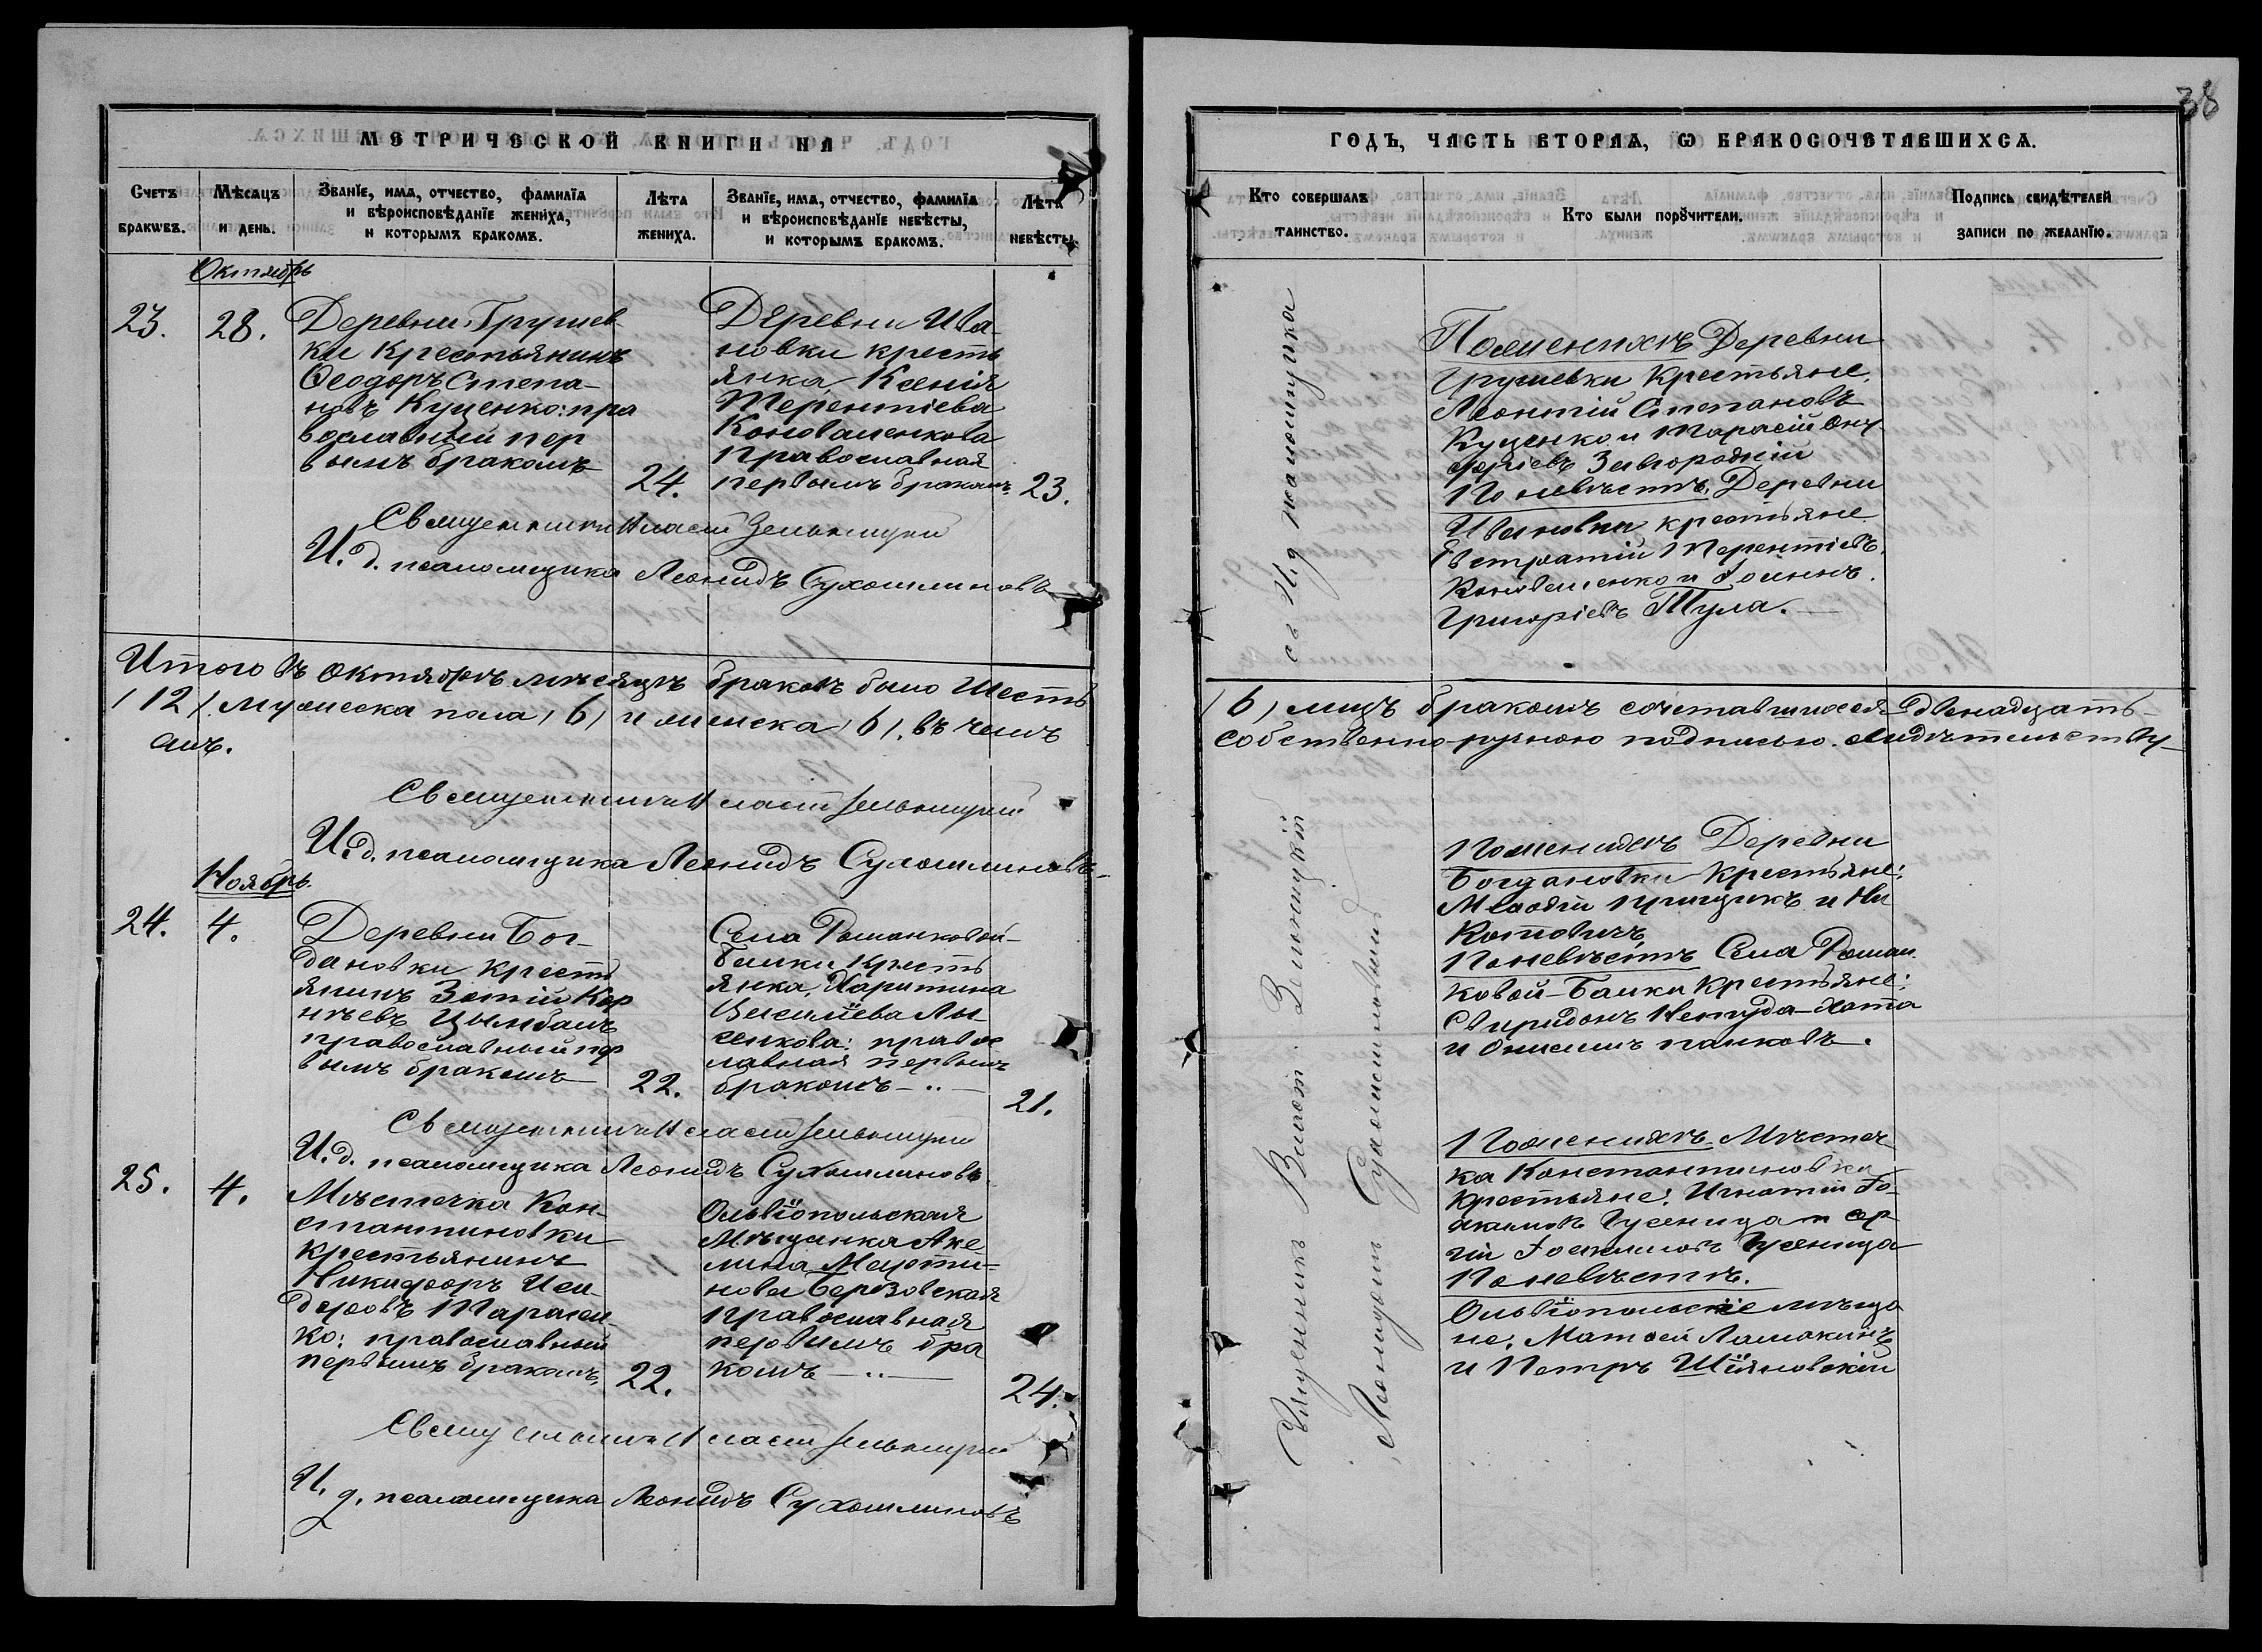 38
МЕТРИЧЕСКОЙ КНИГИ НА
Счетъ браковъ.
Мѣсяцъ и день.
Званїе, имя, отчество, фамилїя
и вѣроисповѣданїе жениха,
и которымъ бракомъ.
Лѣта
жениха.
Званїе, имя, отчество, фамилїя
и вѣроисповѣданїе невѣсты,
и которымъ бракомъ.
Лѣта
невѣсты.
Октябрь
23.
28.
Деревни Грушев
ки Крестьянинъ
Ѳеодоръ Степа-
новъ Куценко: пра
вославный пер
вымъ бракомъ
24.
Деревни Ива-
новки кресть
янка Ксенія
Терентіева
Коноваленкова
Православная
первымъ бракомъ.
23.
Священникъ Зельницкій
И. д. псаломщика Леонидъ Сухомлиновъ
Итого въ Октябрѣ мѣсяцѣ браковъ было Шесть
/12/. мужеска пола /6/ и женска /6/. въ чемъ
емъ.
Священникъ Зельницкій
И. д. псаломщика Леонидъ Сухомлиновъ
Ноябрь.
24.
4.
Деревни Бог-
дановки Кресть
янинъ Зотій Кор
нѣевъ Цымбалъ
православный пер
вымъ бракомъ
22.
Села Романковой-
Балки Кресть
янка, Харитина
Василїева Лы
сенкова: правос
лавная первымъ
бракомъ
21.
Священникъ Зельницкій
И. д. псаломщика Леонидъ Сухомлиновъ.
25.
4.
Мѣстечка Кон-
стантиновки
Крестьянинъ
Никифоръ Иси-
доровъ Тарасен-
ко: православный
первымъ бракомъ.
22.
Ольвїопольская
Мѣщанка Аке
лина Марти-
нова Березовская
Православная
первымъ бра
комъ
24.
Священникъ Зельницкій
И. д. псаломщика Леонидъ Сухомлиновъ
ГОДЪ, ЧАСТЬ ВТОРАЯ, Ѡ БРАКОСОЧЕТАВШИХСЯ.
Кто совершалъ
таинство.
Кто были порꙋчители.
Подпись свидѣтелей
записи по желанїю.
Священникъ Зельницкій
съ И. д. псаломщика
Леонидомъ Сухомлиновымъ
По женихѣ Деревни
Грушевки Крестьяне,
Леонтій Степановъ
Куценко и Тарасій Ону
фріевъ Завгородній
По невѣстѣ: Деревни
Ивановки крестьяне
Евстратій Терентіевъ
Коноваленко и Іоаннъ
Григоріевъ Тула.
/6/ лицъ бракомъ сочетавшихся Двенадцать
собственно-ручною подписью свидѣтельству-
По женихѣ Деревни
Богдановки Крестьяне:
Меѳодій Прищикъ и
Котовичъ,
По невѣстѣ Села Роман
ковой-Балки Крестьяне:
Свиридонъ Непуда-Хата
и Онисимъ Панковъ.
По женихѣ Мѣстеч
ка Константиновки
Крестьяне: Игнатій Іо-
акимовъ Гусеница и Сер
гій Іоакимовъ Гусеница
По невѣстѣ.
Ольвїопольскїе мѣща
не: Матѳей Ламакинъ
и Петръ Шїяновскій